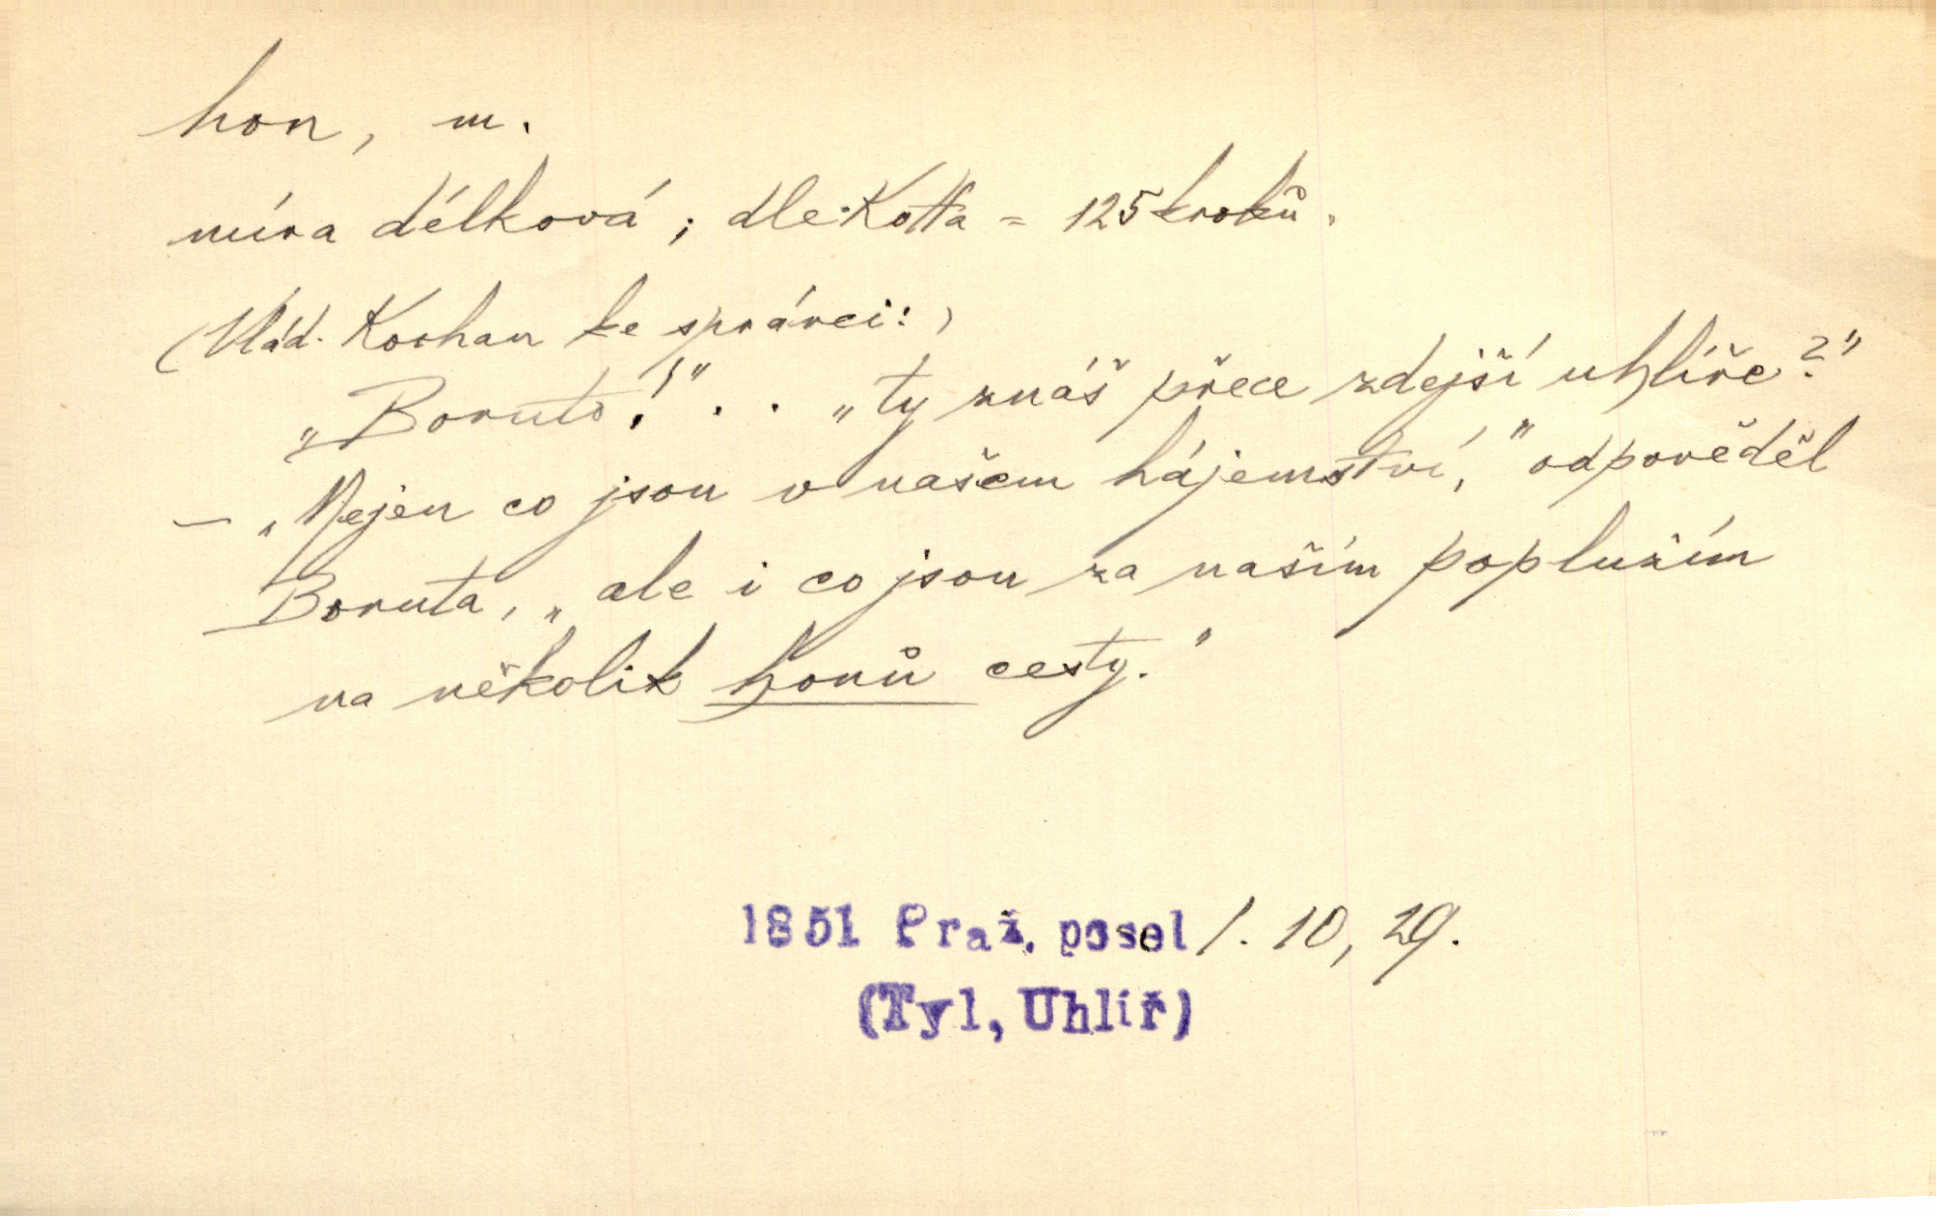 hon, m.
míra délková; dle Kotta = 125 kroků.
(Vlád. Kochan ke správci:)
„Boruto!" . . „ty znáš přece zdejší uhlíře?"
— „Nejen co jsou v našem hájemství," odpověděl
Boruta, „ale i co jsou za naším poplužím
na několik honů cesty."
1851 Praž. posel 1. 10, 29.
(Tyl, Uhlíř)